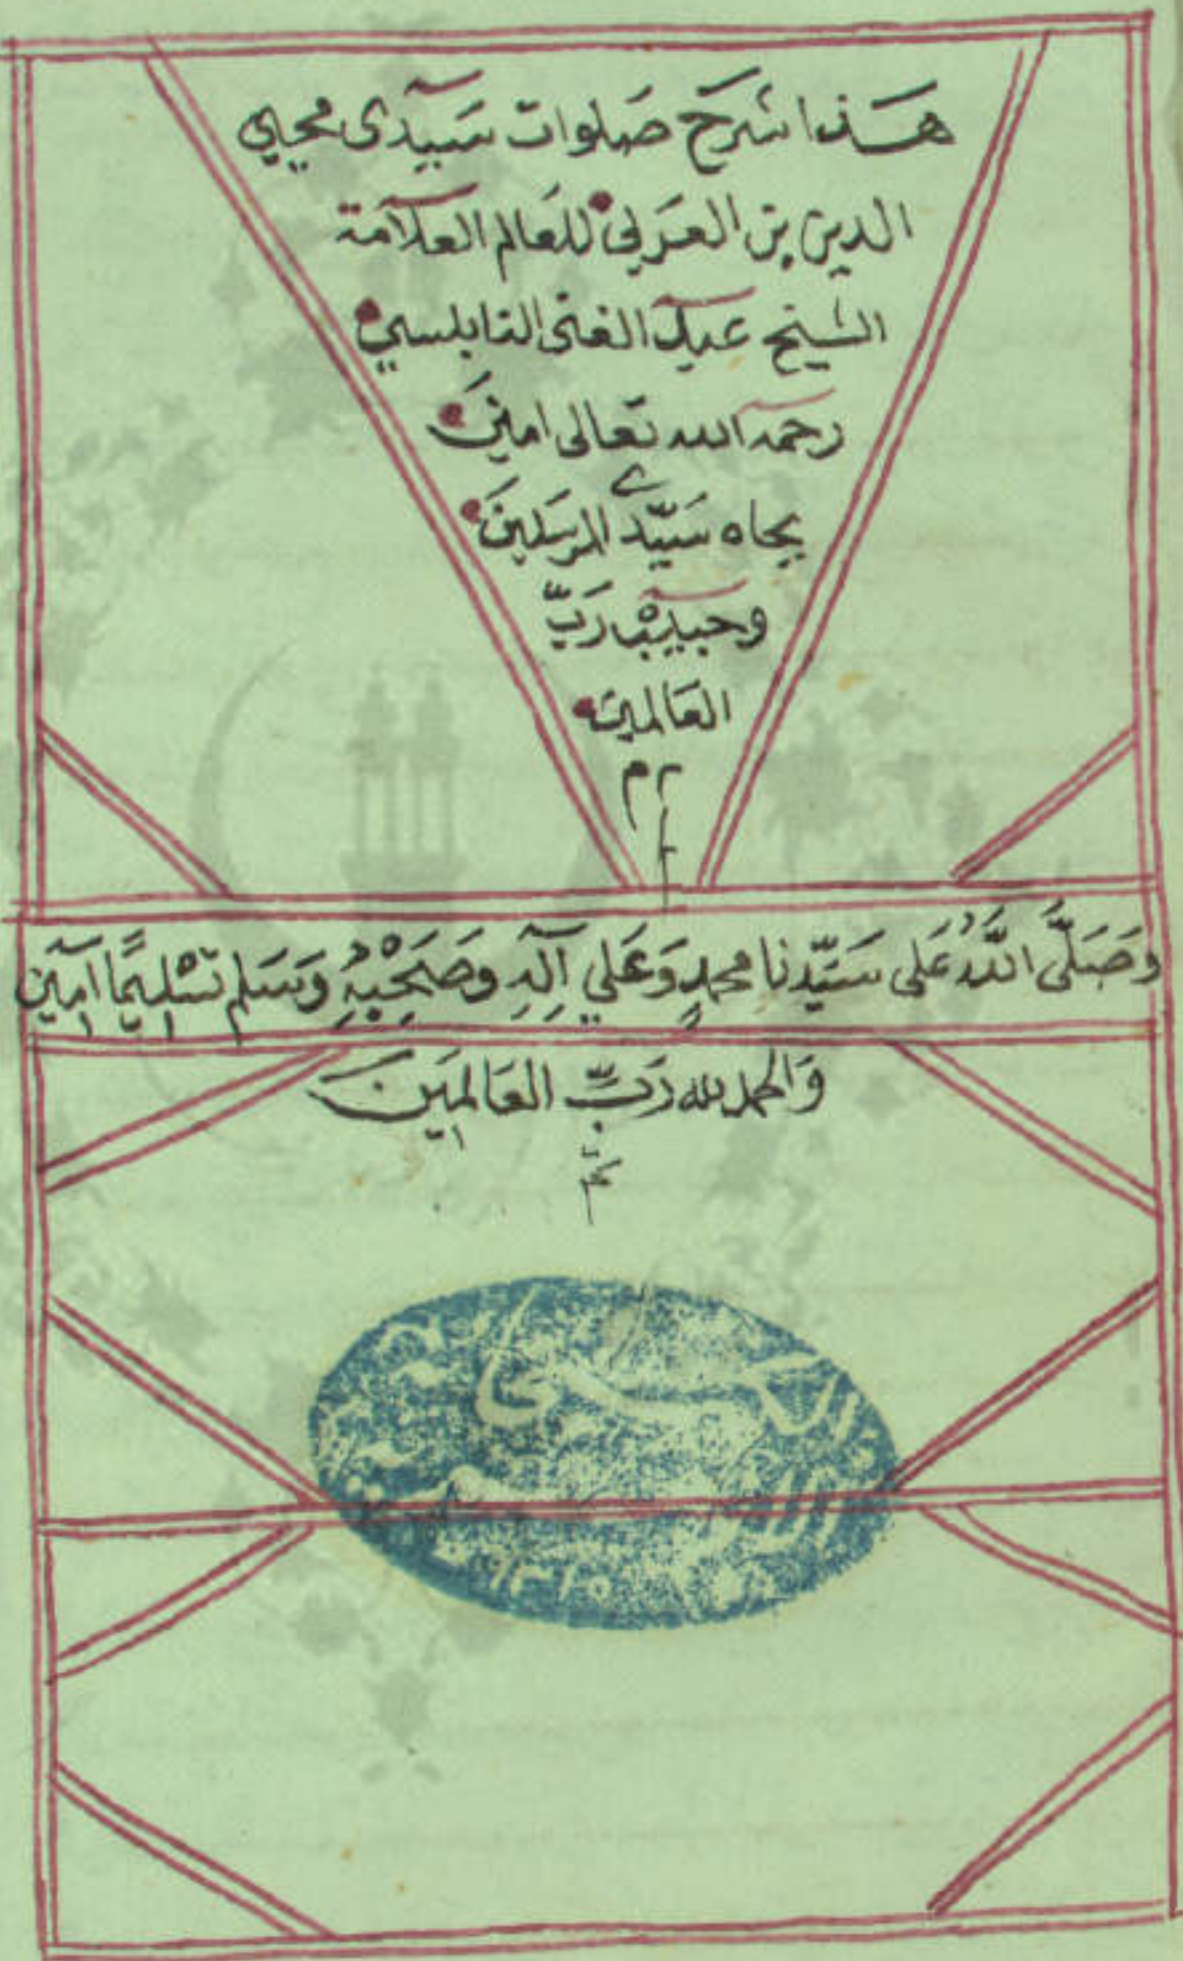 هَذا شَرح صَلوات سَيدى محيي
الدين بن العَربي للعَالم العَلآمة
الشيخ عَبد الغنى النابلسي
رحمه الله تعَالى امينَ
بجاه سَيّد المرسَلينَ
وحبيبْ رَبّ
العَالمين
م م
وَصَلَّى اللَّهُ عَلى سَيّدنا محمدٍ وَعَلي آلِهِ وصَحْبِهِ وَسَلم تسْليمًا آمين
وَالحمد لله رَبِّ العَالمِينَ